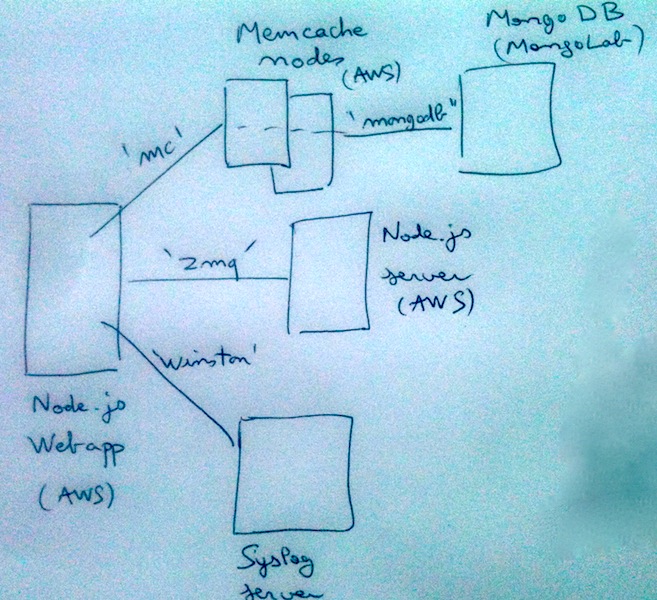 Memcache
nodes
(AWS)
Mongo DB
(MongoLab)
'mc'
'mongodb"
'zmq'
Node.js
server
(AWS)
'Winston'
Node.js
Webapp
(AWS)
Syslog
server